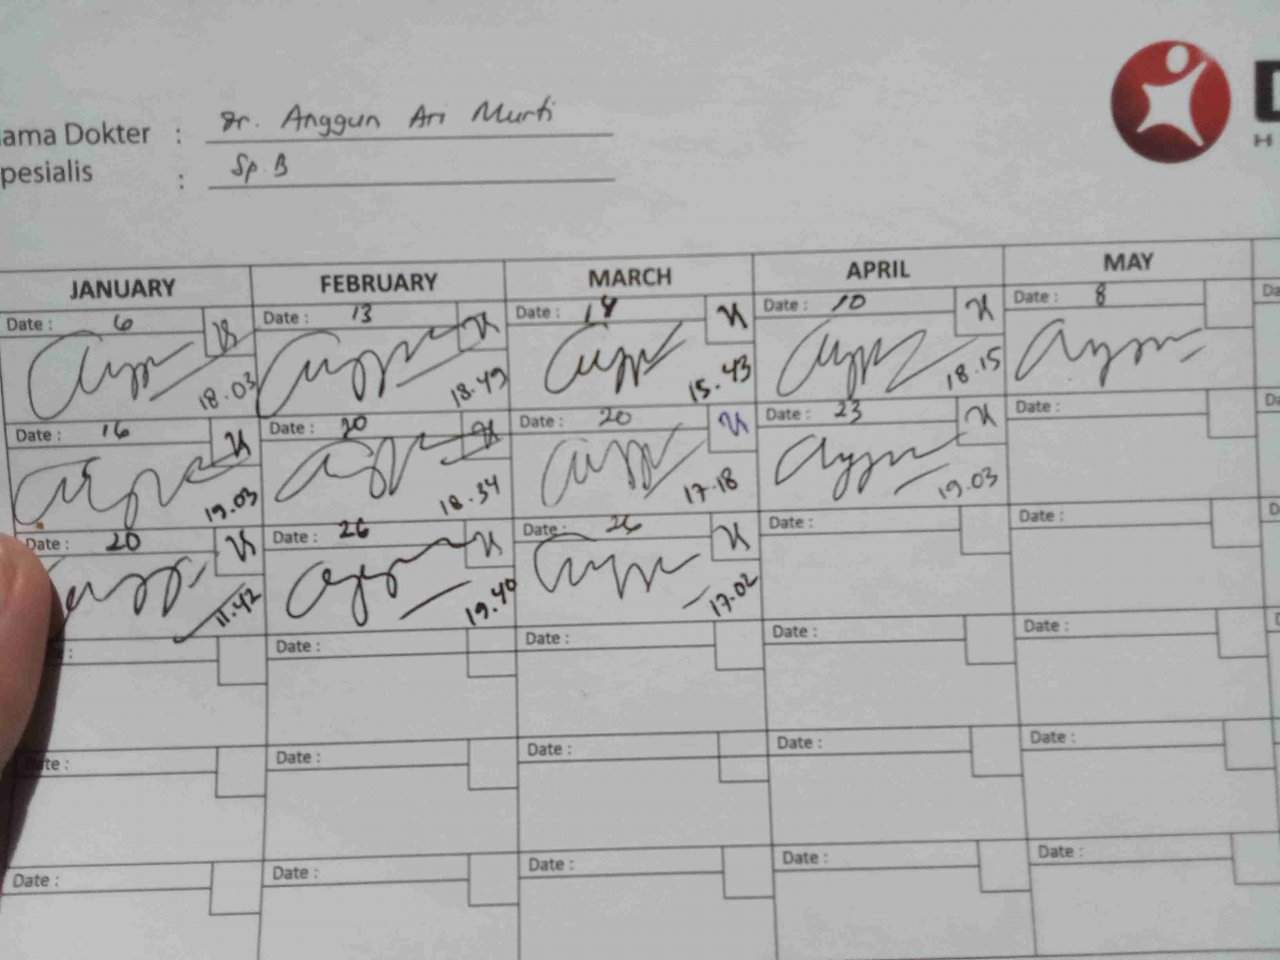 ama Dokter : Dr. Anggun Ari Murti
pesialis : Sp.B
H
JANUARY FEBRUARY MARCH APRIL MAY
Date : 6 Date : 13 Date : Date : 10 Date : 8 Da
18.03 18.49 15.43 18.15
Date : 16 Date : 20 Date : 20 Date : 23 Date : Da
19.03 18.34 17.18 19.03
Date : 20 Date : 26 Date : 26 Date : Date : D
11.42 19.40 17.02
: Date : Date : Date : Date :
te : Date : Date : Date : Date :
Date : Date : Date : Date : Date :